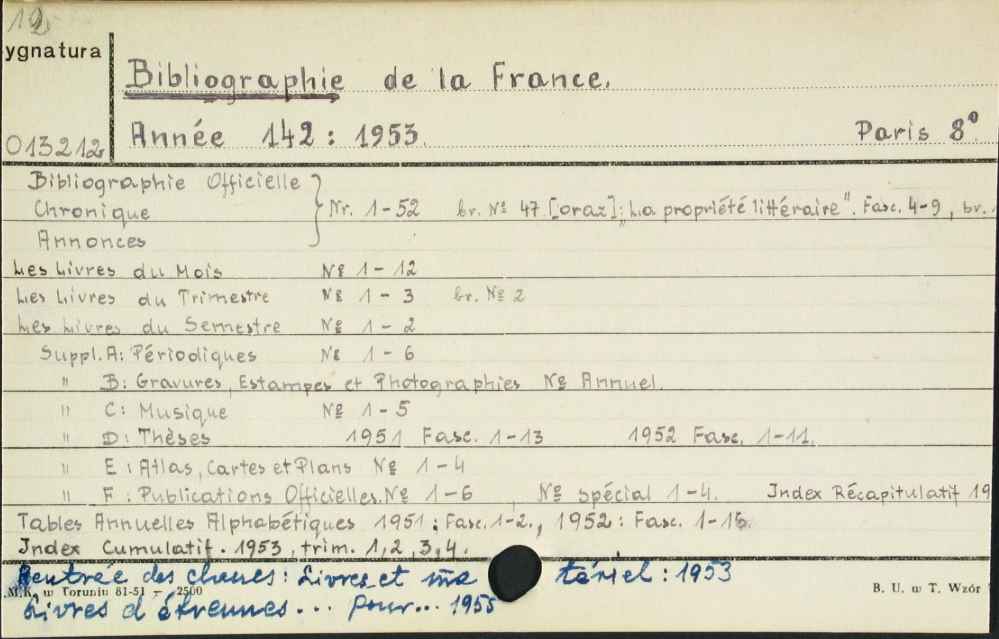 12
ygnatura
Bibliographie de la France.
013212
Année 142: 1953. Paris 8°
Bibliographie Officielle
Chronique } Nr. 1-52 br. Nº 47 [oraz]: „La propriété littéraire". Fasc. 4-9, br.
Annonces
Les Livres du Mois Nº 1-12
Les Livres du Trimestre Nº 1-3 br. Nº 2
Les Livres du Semestre Nº 1-2
Suppl. A: Périodiques Nº 1-6
" B: Gravures, Estampes et Photographies Nº Annuel.
" C: Musique Nº 1-5
" D: Thèses 1951 Fasc. 1-13 1952 Fasc. 1-11.
" E: Atlas, Cartes et Plans Nº 1-4
" F: Publications Officielles. Nº 1-6 Nº spécial 1-4. Index Récapitulatif 19
Tables Annuelles Alphabétiques 1951: Fasc. 1-2., 1952: Fasc.
Index Cumulatif. 1953, trim. 1,2,3,4.
Rentrée des classes: Livres et matériel: 1953
M.K. w Toruniu 81-51 — 2500 B. U. w T. Wzór
Livres d'étrennes... pour... 1955